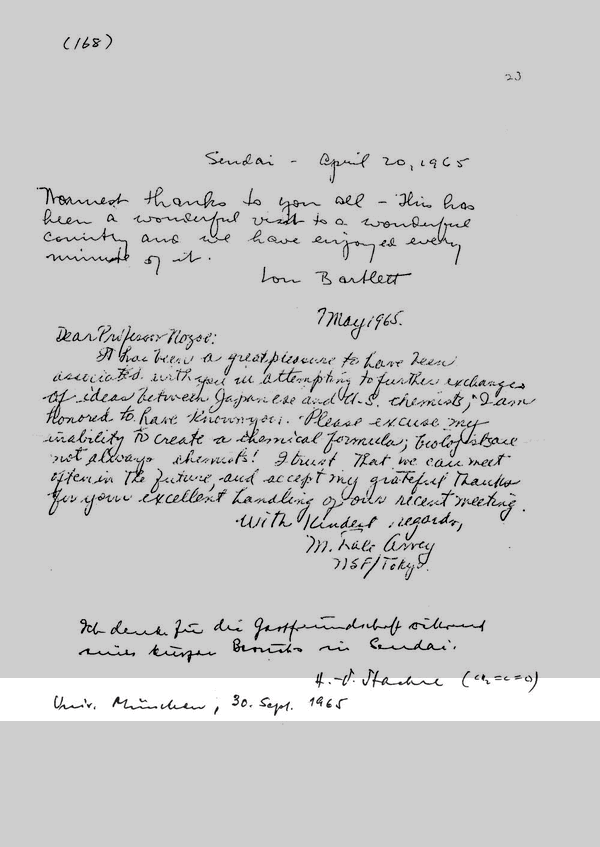 (168)
23
Sendai - April 20, 1965
Warmest thanks to you all - This has
been a wonderful visit to a wonderful
country and we have enjoyed every
minute of it.
Lou Bartlett
7 May 1965.
Dear Professor Nozoe:
It has been a great pleasure to have been
associated with you in attempting to further exchanges
of ideas between Japanese and U.S. chemists; I am
honored to have known you. Please excuse my
inability to create a chemical formula; biologists are
not always chemists! I trust that we can meet
often in the future, and accept my grateful thanks
for your excellent handling of our recent meeting.
With kindest regards,
M. Dale Arvey
NSF/Tokyo.
Ich danke für die Gastfreundschaft während
meines kurzen Besuchs in Sendai.
H.-D. (CH2=C=O)
Univ. München, 30. Sept. 1965